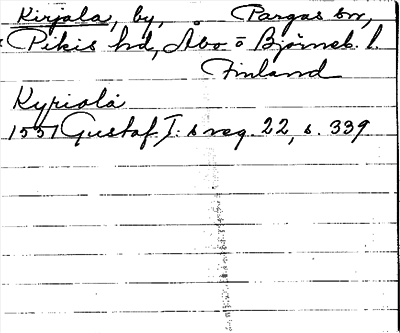 Kirjala, by, Pargas sn,
Pikis hd, Åbo o Björneb. l.
Finland
Kyriala
1551 Gustaf I:s reg. 22, s. 339